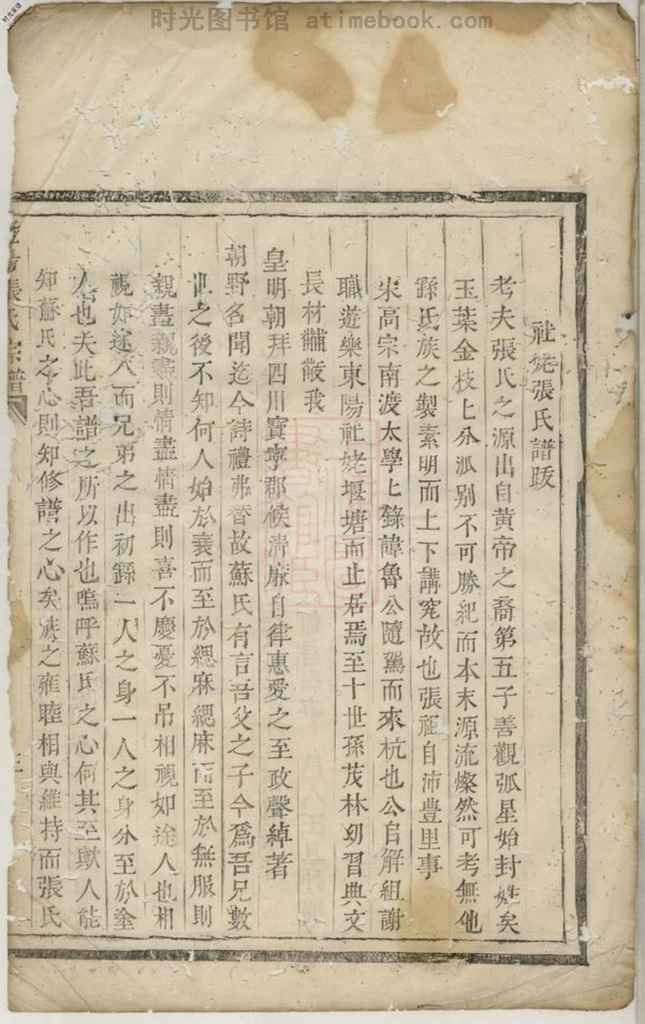 时光图书馆 atimebook.com
社姥張氏譜跋
考夫張氏之源出自黃帝之裔第五子善觀弧星始封姓矣
玉葉金枝上分派别不可勝紀而本末源流燦然可考無他
繇氏族之製素明而上下講究故也張祖自沛豊里事
宋高宗南渡太學上錄諱魯公隨駕而來杭也公自解組謝
職遊樂東陽社姥堰塘而止居焉至十世孫茂林幼習典文
長材黼黻我
皇明朝拜四川寶寧郡候清廉自律惠愛之至政聲綽著
朝野名聞迄今詩禮弗替故蘇氏有言吾父之子今爲吾兄數
世之後不知何人始於衰而至於緦麻緦麻而至於無服則
親盡親盡則情盡情盡則喜不慶憂不吊相視如途人也相
視如途人而兄弟之出初繇一人之身一人之身分至於塗
人也夫此吾譜之所以作也嗚呼蘇氏之心何其至歟人能
知蘇氏之心則知修譜之心矣族之雍睦相與維持而張氏
張氏宗譜